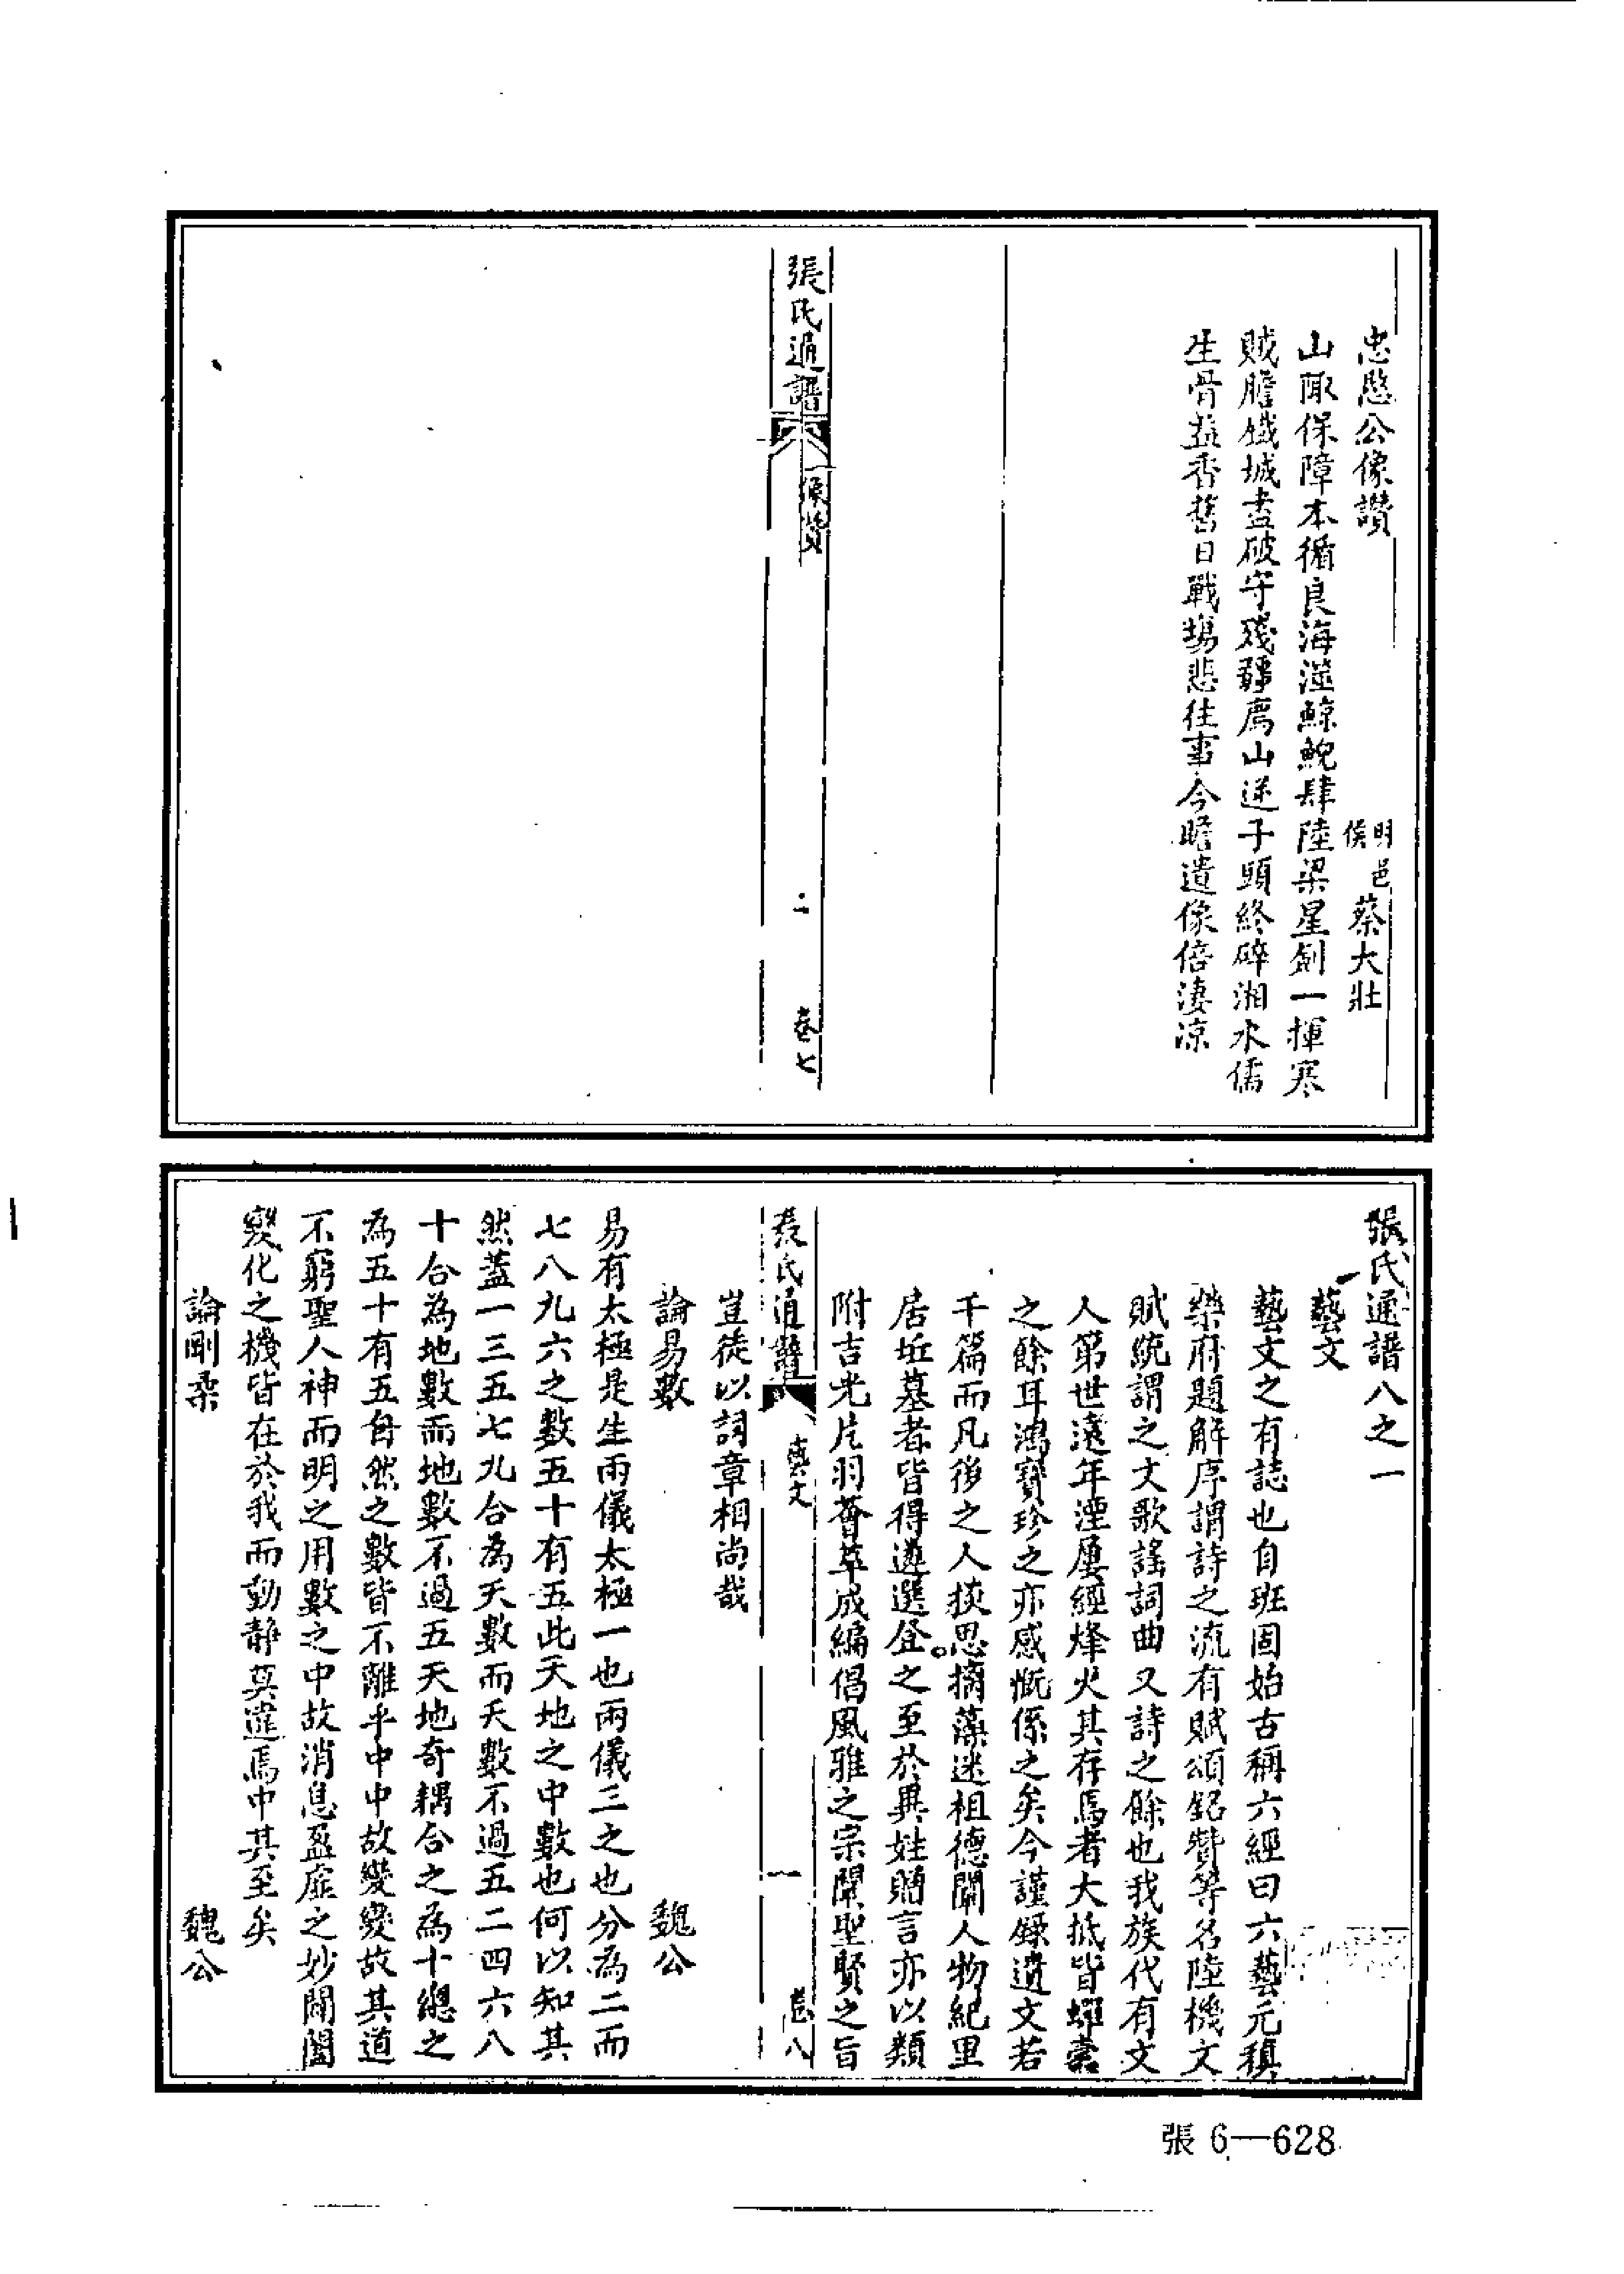 忠愍公像讚
明邑侯蔡大壯
山陬保障本循良海澨鯨鯢肆陸梁星劍一揮寒
賊膽鐵城盡破守殘疆焉山逆子頭終碎湘水儒
生骨益香舊日戰場悲往事今瞻遺像倍淒凉
張氏通譜
像贊
二
卷七
張氏通譜八之一
藝文
藝文之有誌也自班固始古稱六經曰六藝元稹
樂府題解序謂詩之流有賦頌銘贊等名陸機文
賦統謂之文歌謠詞曲又詩之餘也我族代有文
人第世遠年湮屢經烽火其存焉者大抵皆蟫蠹
之餘耳鴻寶珍之亦感慨係之矣今謹錄遺文若
千篇而凡後之人掞思摛藻述祖德闡人物紀里
居坵墓者皆得遴選登之至於異姓贈言亦以類
附吉光片羽薈萃成編倡風雅之宗闡聖賢之旨
張氏通譜
藝文
一
卷八
豈徒以詞章相尚哉
論易數
魏公
易有太極是生兩儀太極一也兩儀三之也分為二而
七八九六之數五十有五此天地之中數也何以知其
然蓋一三五七九合為天數而天數不過五二四六八
十合為地數而地數不過五天地奇耦合之為十總之
為五十有五自然之數皆不離乎中中故變變故其道
不窮聖人神而明之用數之中故消息盈虛之妙闢闔
變化之機皆在於我而動靜莫違焉中其至矣
論剛柔
魏公
張 6—628